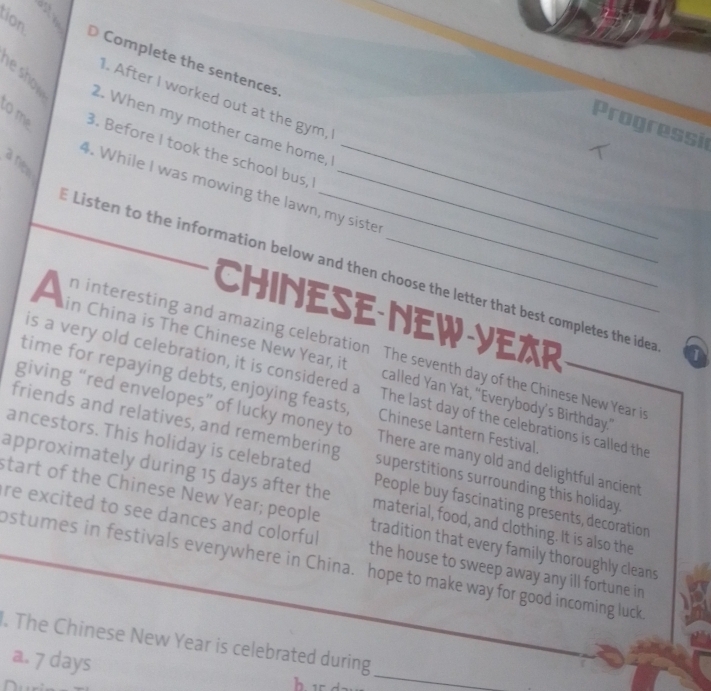 tion.
to me.
D Complete the sentences.
1. After I worked out at the gym, I
2. When my mother came home, I
3. Before I took the school bus, I
4. While I was mowing the lawn, my sister
Progressi
E Listen to the information below and then choose the letter that best completes the idea.
CHINESE-NEW-YEAR
An interesting and amazing celebration
in China is The Chinese New Year, it
is a very old celebration, it is considered a
time for repaying debts, enjoying feasts,
giving "red envelopes" of lucky money to
friends and relatives, and remembering
ancestors. This holiday is celebrated
approximately during 15 days after the
start of the Chinese New Year; people
are excited to see dances and colorful
ostumes in festivals everywhere in China.
The seventh day of the Chinese New Year is
called Yan Yat, "Everybody's Birthday."
The last day of the celebrations is called the
Chinese Lantern Festival.
There are many old and delightful ancient
superstitions surrounding this holiday.
People buy fascinating presents, decoration
material, food, and clothing. It is also the
tradition that every family thoroughly cleans
the house to sweep away any ill fortune in
hope to make way for good incoming luck.
1. The Chinese New Year is celebrated during
a. 7 days